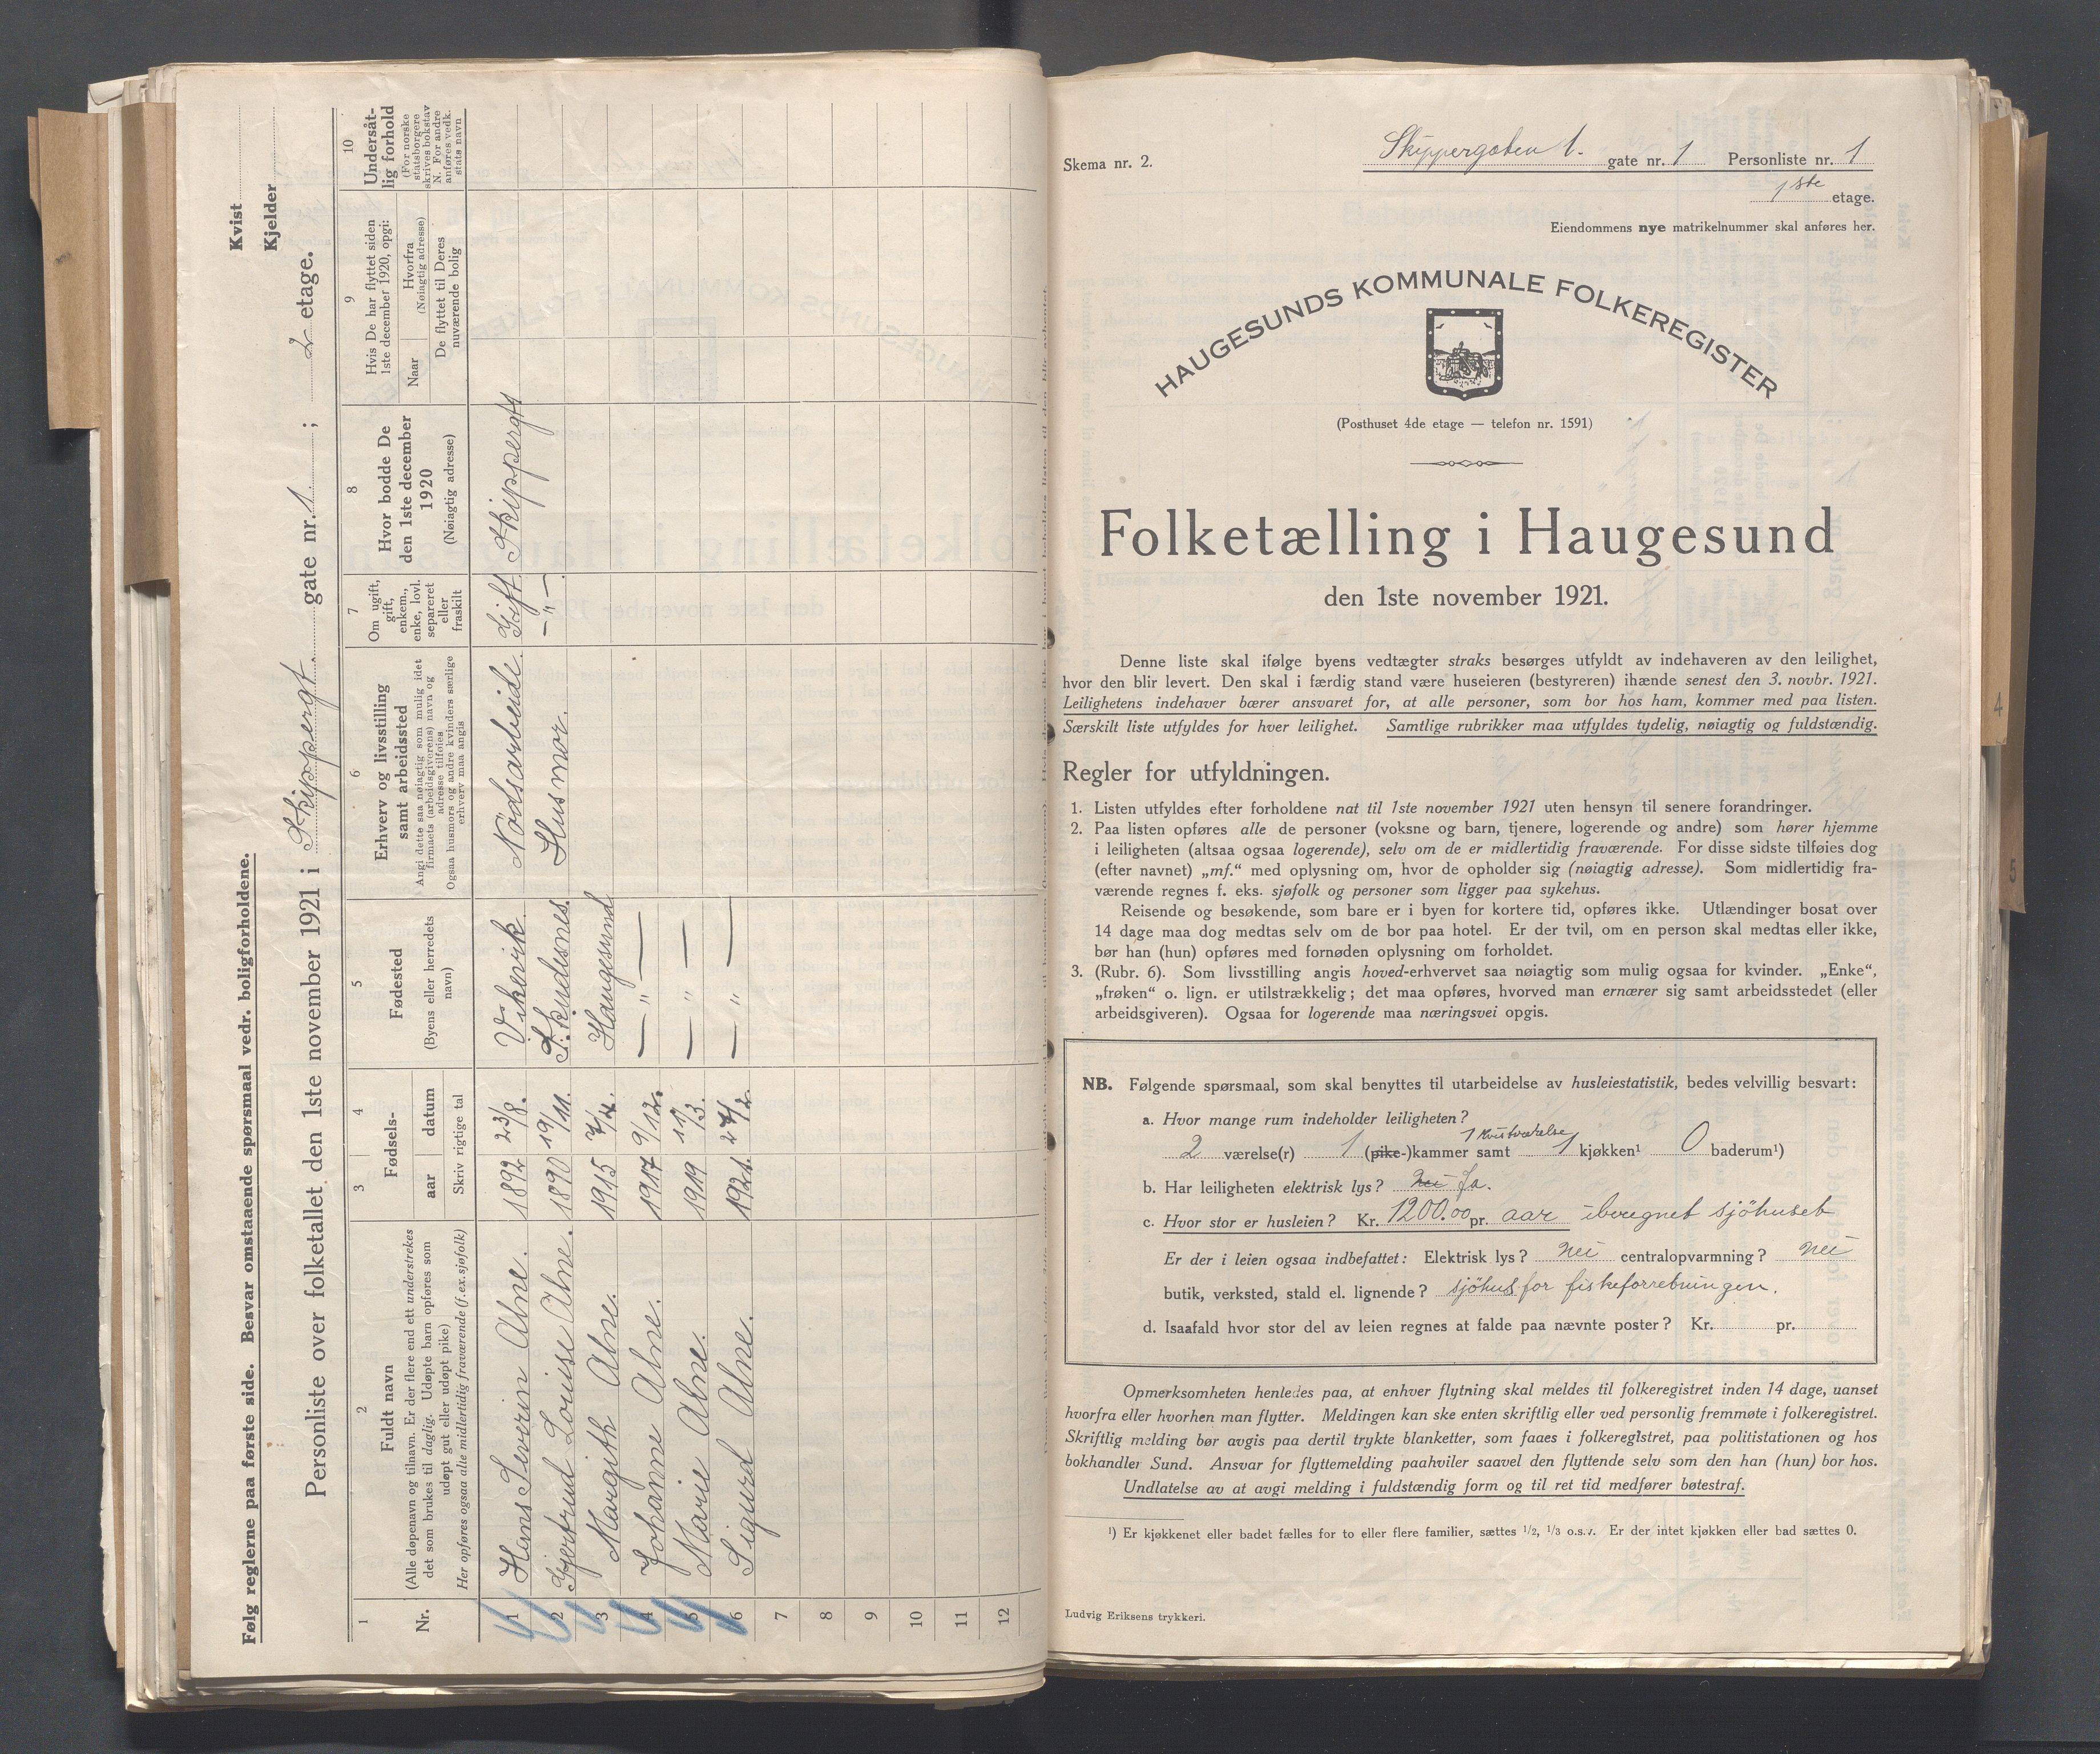 Følg reglerne paa første side. Besvar omstaaende spørsmaal vedr. boligforholdene.
Kvist
Kjelder
Personliste over folketallet den 1ste november 1921 i Skippergt. gate nr. 1 ; 2 etage.
1
Nr.
2
Fuldt navn
(Alle døpenavn og tilnavn. Er der flere end ett understrekes
det som brukes til daglig. Udøpte barn opføres som
udøpt gut eller udøpt pike)
Her opføres ogsaa alle midlertidig fraværende (f.ex. sjøfolk)
3 4
Fødsels-
aar datum
Skriv rigtige tal
5
Fødested
(Byens eller herredets
navn)
6
Erhverv og livsstilling
samt arbeidssted
Angi dette saa nøiagtig som mulig idet
firmaets (arbeidsgiverens) navn og
adresse tilføies
Ogsaa husmors og andre kvinders særlige
erhverv maa angis
7
Om ugift,
gift,
enkem.,
enke, lovl.
separeret
eller
fraskilt
8
Hvor bodde De
den 1ste december
1920
(Nøiagtig adresse)
9
Hvis De har flyttet siden
1ste december 1920, opgi:
Naar
Hvorfra
(Nøiagtig adresse)
De flyttet til Deres
nuværende bolig
10
Undersåt-
lig forhold
(For norske
statsborgere
skrives bokstav
N. For andre
anføres vedk.
stats navn
1 Hans Severin Alne. 1892 23/8. Vikevik Nodsarbeide. Gift Skippergt
2 Gjertrud Louise Alne. 1890 19/11. Skudesnes Husmor. — " —
3 Margith Alne. 1915 Haugesund
4 Johanne Alne. 1917 9/12. — " —
5 Marie Alne. 1919 17/3. — " —
6 Sigurd Alne. 1921. — " —
7
8
9
10
11
12
Skema nr. 2.
Skippergaten 1. gate nr. 1 Personliste nr. 1
1ste etage.
Eiendommens nye matrikelnummer skal anføres her.
HAUGESUNDS KOMMUNALE FOLKEREGISTER
(Posthuset 4de etage — telefon nr. 1591)
Folketælling i Haugesund
den 1ste november 1921.
Denne liste skal ifølge byens vedtægter straks besørges utfyldt av indehaveren av den leilighet,
hvor den blir levert. Den skal i færdig stand være huseieren (bestyreren) ihænde senest den 3. novbr. 1921.
Leilighetens indehaver bærer ansvaret for, at alle personer, som bor hos ham, kommer med paa listen.
Særskilt liste utfyldes for hver leilighet. Samtlige rubrikker maa utfyldes tydelig, nøiagtig og fuldstændig.
Regler for utfyldningen.
1. Listen utfyldes efter forholdene nat til 1ste november 1921 uten hensyn til senere forandringer.
2. Paa listen opføres alle de personer (voksne og barn, tjenere, logerende og andre) som hører hjemme
i leiligheten (altsaa ogsaa logerende), selv om de er midlertidig fraværende. For disse sidste tilføies dog
(efter navnet) „mf.“ med oplysning om, hvor de opholder sig (nøiagtig adresse). Som midlertidig fra-
værende regnes f. eks. sjøfolk og personer som ligger paa sykehus.
Reisende og besøkende, som bare er i byen for kortere tid, opføres ikke. Utlændinger bosat over
14 dage maa dog medtas selv om de bor paa hotel. Er der tvil, om en person skal medtas eller ikke,
bør han (hun) opføres med fornøden oplysning om forholdet.
3. (Rubr. 6). Som livsstilling angis hoved-erhvervet saa nøiagtig som mulig ogsaa for kvinder. „Enke“,
„frøken“ o. lign. er utilstrækkelig; det maa opføres, hvorved man ernærer sig samt arbeidsstedet (eller
arbeidsgiveren). Ogsaa for logerende maa næringsvei opgis.
NB. Følgende spørsmaal, som skal benyttes til utarbeidelse av husleiestatistik, bedes velvillig besvart:
a. Hvor mange rum indeholder leiligheten?
1 Kvistværelse
2 værelse(r) 1 (pike-)kammer samt 1 kjøkken¹ 0 baderum¹)
b. Har leiligheten elektrisk lys? nei Ja.
c. Hvor stor er husleien? Kr. 1200.00 pr. aar iberegnet sjöhuset
Er der i leien ogsaa indbefattet: Elektrisk lys? nei centralopvarmning? nei
butik, verksted, stald el. lignende? sjöhus for fiskeforretningen.
d. Isaafald hvor stor del av leien regnes at falde paa nævnte poster? Kr. pr.
Opmerksomheten henledes paa, at enhver flytning skal meldes til folkeregistret inden 14 dage, uanset
hvorfra eller hvorhen man flytter. Meldingen kan ske enten skriftlig eller ved personlig fremmøte i folkeregistret.
Skriftlig melding bør avgis paa dertil trykte blanketter, som faaes i folkeregistret, paa politistationen og hos
bokhandler Sund. Ansvar for flyttemelding paahviler saavel den flyttende selv som den han (hun) bor hos.
Undlatelse av at avgi melding i fuldstændig form og til ret tid medfører bøtestraf.
¹) Er kjøkkenet eller badet fælles for to eller flere familier, sættes 1/2, 1/3 o.s.v. Er der intet kjøkken eller bad sættes 0.
Ludvig Eriksens trykkeri.
4
5